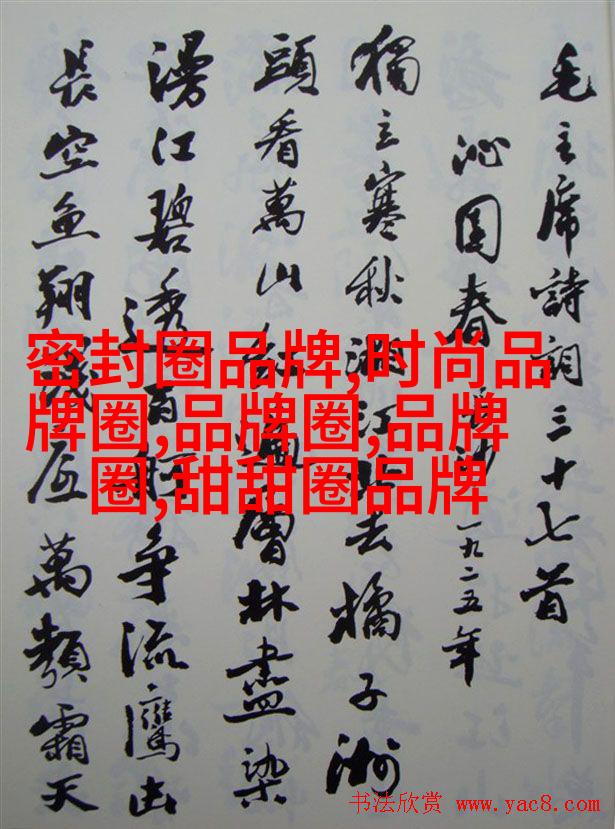 毛主席詩詞三十七首
沁園春 長沙 一九二五年
獨立寒秋湘江北去橘子洲
頭看萬山紅遍層林盡染
漫江碧透百舸争流鷹击
長空魚翔淺底萬類霜天
密封圈品牌,时尚品
牌圈,品牌圈,品牌
圈,甜甜圈品牌
书法欣赏 www.yac8.com